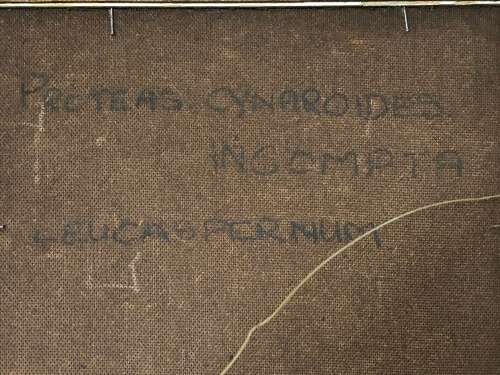 PROTEAS CYNAROIDES
INCOMPTA
LEUCASPERNUM